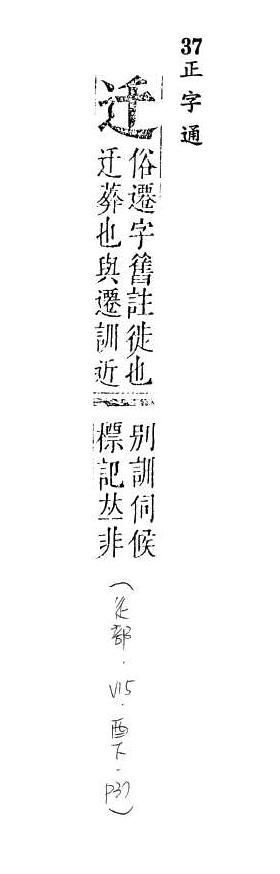 37正字通
迁
俗遷字舊註徙也
迁葬也與遷訓近
別訓伺候
標記𠀤非
(辵部．V15．酉下．P37)